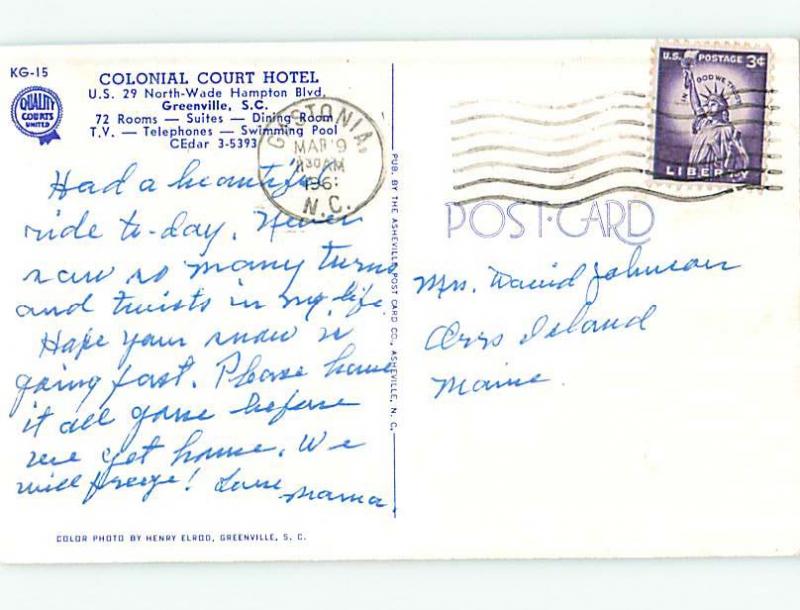 KG-15
COLONIAL COURT HOTEL
U.S. 29 North-Wade Hampton Blvd.
Greenville, S.C.
72 Rooms — Suites — Dining Room
T.V. — Telephones — Swimming Pool
CEdar 3-5393
QUALITY
COURTS
UNITED
GASTONIA,
MAR 9
30 AM
196
N.C.
U.S. POSTAGE 3¢
IN GOD WE TRUST
LIBERTY
POST-CARD
Had a beautiful
ride to-day. Never
saw so many turns
and twists in my life.
Hope your snow is
going fast. Please have
it all gone before
we get home. We
will freeze! Love
Mama.
Mrs. David Johnson
Orrs Island
Maine.
PUB. BY THE ASHEVILLE POST CARD CO., ASHEVILLE, N. C.
COLOR PHOTO BY HENRY ELROD, GREENVILLE, S. C.